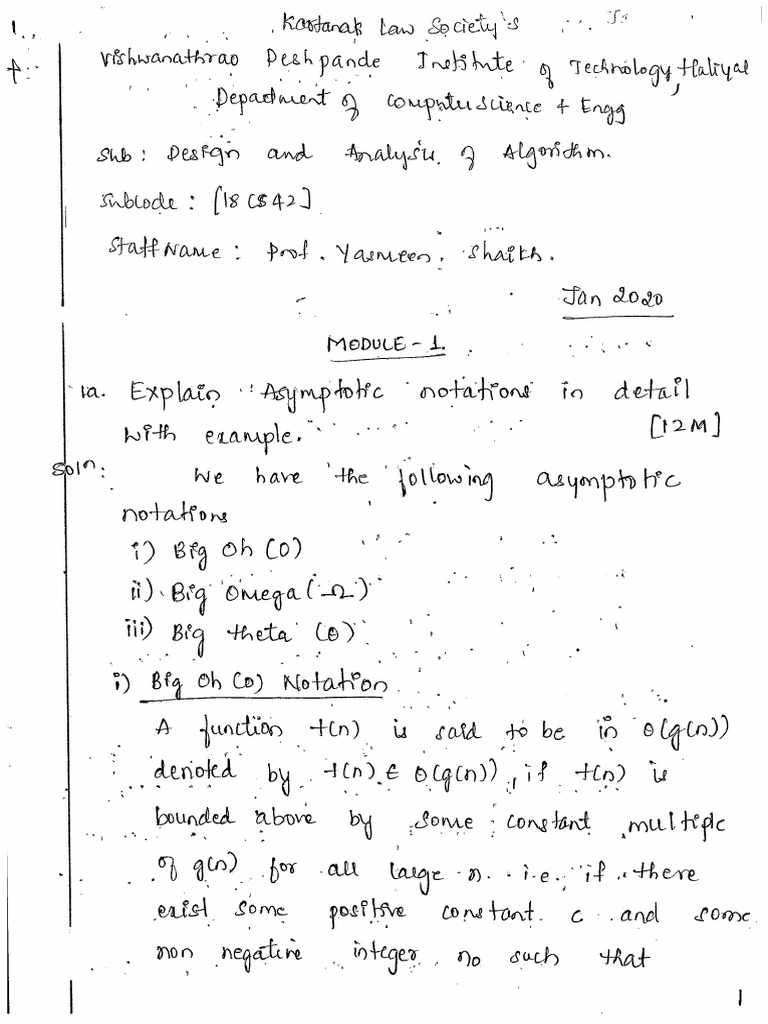 1.
Karanatak Law Society's
Vishwanathrao Deshpande Institute of Technology, Haliyal
Department of Computer Science + Engg
Sub: Design and Analysis of Algorithm.
Subcode: [18CS42]
Staff Name: Prof. Yasmeen. Shaikh.
Jan 2020
MODULE-1.
1a. Explain Asymptotic notations in detail
with example. [12M]
Soln: We have the following asymptotic
notations
i) Big Oh (O)
ii) Big Omega (Ω)
iii) Big theta (θ)
i) Big Oh (O) Notation
A function t(n) is said to be in O(g(n))
denoted by t(n) ∈ O(g(n)), if t(n) is
bounded above by some constant multiple
of g(n) for all large n. i.e., if there
exist some positive constant c and some
non negative integer no such that
1